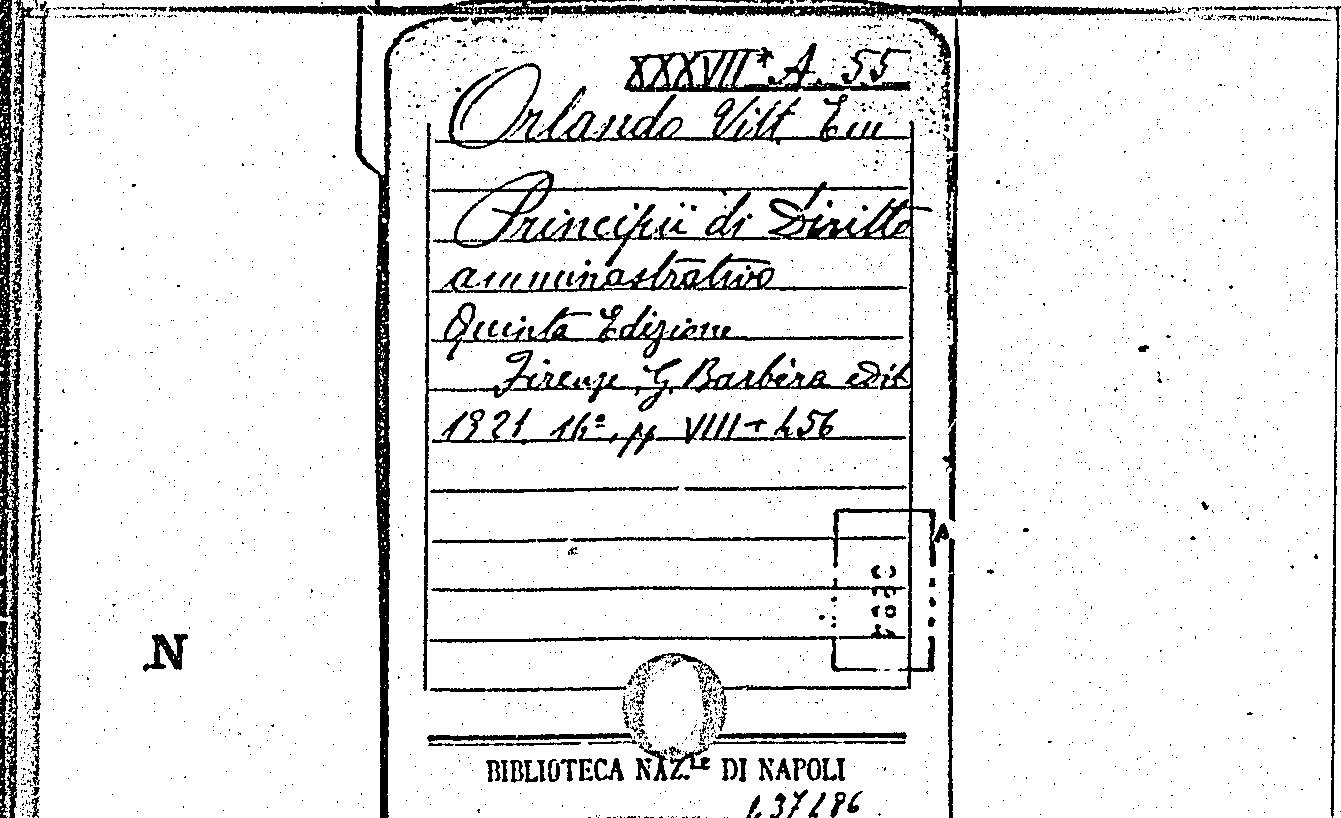 XXXVII* A. 55
Orlando Vitt. Em
Principii di Diritto
amministrativo
Quinta Edizione
Firenze, G. Barbèra edit
1921. 16º, pp VIII+456
A
N
BIBLIOTECA NAZ.LE DI NAPOLI
437186